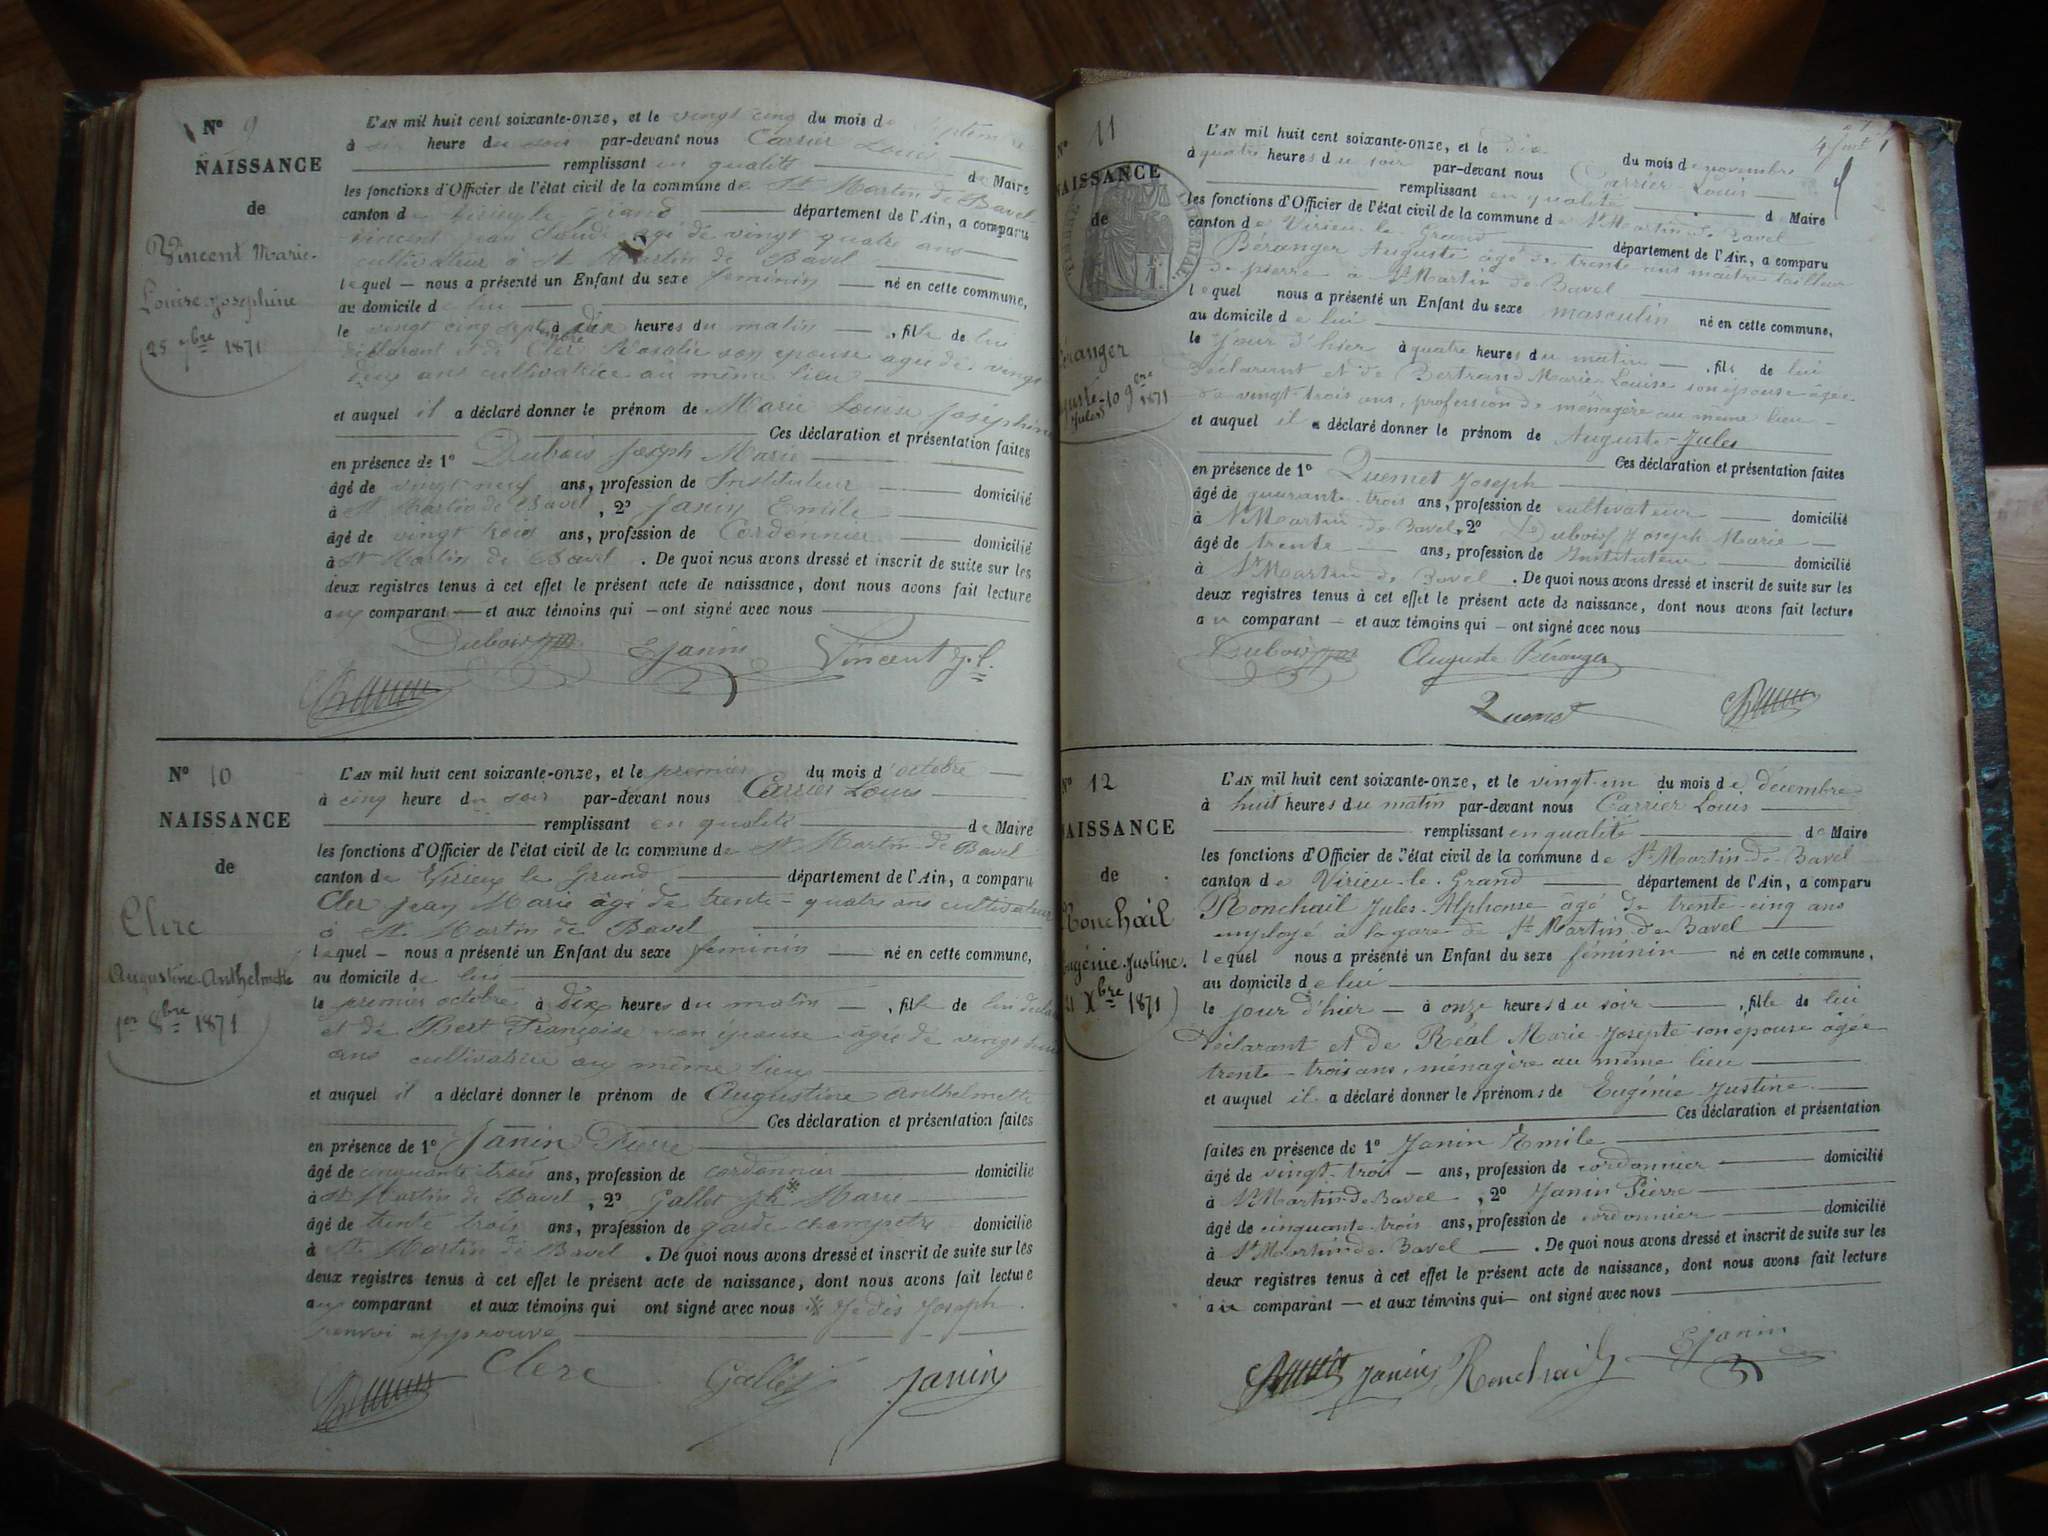 N° 9
NAISSANCE
de
Vincent Marie-
Louise-Josephine
25 7bre 1871
L'AN mil huit cent soixante-onze, et le vingt cinq du mois de septembre
à six heure du soir par-devant nous Carrier Louis
remplissant en qualité de Maire
les fonctions d'Officier de l'état civil de la commune de St Martin de Bavel
canton de département de l'Ain, a comparu
Vincent jean âgé de vingt quatre ans
cultivateur à St Martin de Bavel
lequel — nous a présenté un Enfant du sexe feminin — né en cette commune,
au domicile de lui
le vingt cinq septembre à dix heures du matin — , fille de lui
déclarant et de Cler Rosalie son epouse agée de vingt
deux ans cultivatrice au même lieu
et auquel il a déclaré donner le prénom de Marie Louise Joséphine
Ces déclaration et présentation faites
en présence de 1° Dubois Joseph Marie
âgé de vingt neuf ans, profession de Instituteur domicilié
à St Martin de Bavel, 2° Janin Emile
âgé de vingt trois ans, profession de Cordonnier domicilié
à St Martin de Bavel. De quoi nous avons dressé et inscrit de suite sur les
deux registres tenus à cet effet le présent acte de naissance, dont nous avons fait lecture
aux comparant — et aux témoins qui — ont signé avec nous
Dubois EJanin Vincent j.C.
N° 10
NAISSANCE
de
Clerc
Augustine-Anthelmette
1er 8bre 1871
L'AN mil huit cent soixante-onze, et le premier du mois d'octobre
à cinq heure du soir par-devant nous Carrier Louis
remplissant en qualité de Maire
les fonctions d'Officier de l'état civil de la commune de St Martin de Bavel
canton de Virieu le Grand département de l'Ain, a comparu
Cler jean Marie âgé de trente-quatre ans cultivateur
à St Martin de Bavel
lequel — nous a présenté un Enfant du sexe feminin — né en cette commune,
au domicile de lui
le premier octobre à dix heures du matin — , fille de lui
et de Bert Françoise son epouse âgée de vingt
ans cultivatrice au même lieu
et auquel il a déclaré donner le prénom de Augustine Anthelmette
Ces déclaration et présentation faites
en présence de 1° Janin Pierre
âgé de cinquante trois ans, profession de cordonnier domicilié
à St Martin de Bavel, 2° Gallet jh * Marie
âgé de trente trois ans, profession de garde champetre domicilié
à St Martin de Bavel. De quoi nous avons dressé et inscrit de suite sur les
deux registres tenus à cet effet le présent acte de naissance, dont nous avons fait lecture
aux comparant et aux témoins qui ont signé avec nous * Joseph
renvoi approuvé
Clerc Gallet Janin
N° 11
NAISSANCE
de
Béranger
Auguste-
Jules 10 9bre 1871
L'AN mil huit cent soixante-onze, et le dix du mois de novembre
à quatre heures du soir par-devant nous Carrier Louis
remplissant en qualité de Maire
les fonctions d'Officier de l'état civil de la commune de St Martin-de Bavel
canton de Virieu le Grand département de l'Ain, a comparu
Béranger Auguste âgé de trente ans maître-tailleur
de pierre à St Martin de Bavel
lequel nous a présenté un Enfant du sexe masculin né en cette commune,
au domicile de lui
le jour d'hier à quatre heures du matin — , fils de lui
déclarant et de Bertrand Marie Louise son épouse âgée
de vingt-trois ans, profession de ménagère au même lieu -
et auquel il a déclaré donner le prénom de Auguste-Jules
Ces déclaration et présentation faites
en présence de 1° Quemet Joseph
âgé de quarante-trois ans, profession de cultivateur domicilié
à St Martin-de Bavel, 2° Dubois Joseph Marie
âgé de trente ans, profession de Instituteur domicilié
à St Martin de Bavel. De quoi nous avons dressé et inscrit de suite sur les
deux registres tenus à cet effet le présent acte de naissance, dont nous avons fait lecture
au comparant — et aux témoins qui — ont signé avec nous
Dubois Auguste Béranger
Quemet
N° 12
NAISSANCE
de
Ronchail
Eugénie-Justine.
21 Xbre 1871
L'AN mil huit cent soixante-onze, et le vingt-un du mois de décembre
à huit heures du matin par-devant nous Carrier Louis
remplissant en qualité de Maire
les fonctions d'Officier de l'état civil de la commune de St Martin-de-Bavel
canton de Virieu-le-Grand département de l'Ain, a comparu
Ronchail Jules-Alphonse âgé de trente-cinq ans
employé à la gare de St Martin-de-Bavel
lequel nous a présenté un Enfant du sexe féminin né en cette commune,
au domicile de lui
le jour d'hier — à onze heures du soir , fille de lui
déclarant et de Réal Marie-Josepte son épouse âgée
trente-trois ans, ménagère au même lieu
et auquel il a déclaré donner les prénoms de Eugénie Justine
Ces déclaration et présentation
faites en présence de 1° Janin Emile
âgé de vingt-trois — ans, profession de cordonnier domicilié
à St Martin-de-Bavel, 2° Janin Pierre
âgé de cinquante-trois ans, profession de cordonnier domicilié
à St Martin de-Bavel. De quoi nous avons dressé et inscrit de suite sur les
deux registres tenus à cet effet le présent acte de naissance, dont nous avons fait lecture
au comparant — et aux témoins qui — ont signé avec nous
Janin Ronchail EJanin